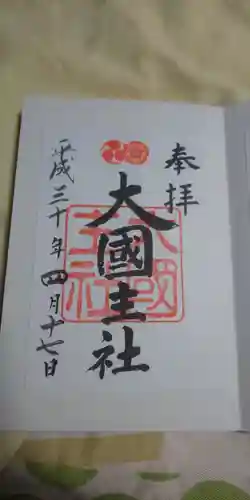 奉拝
大國主社
平成三十年四月十七日
大國主社